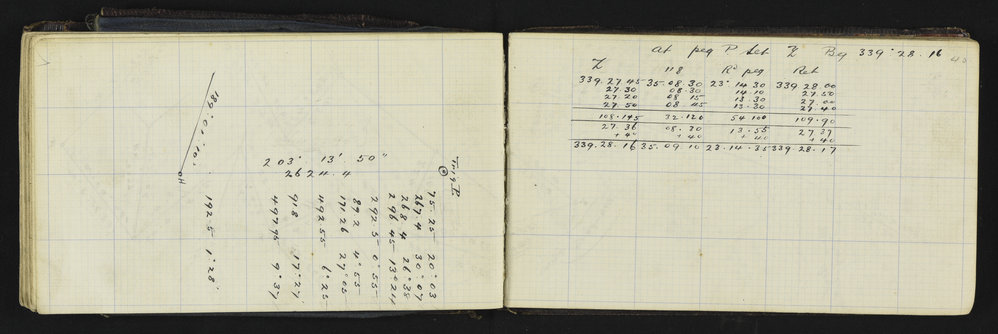 189° 01' 10"
203° 13' 50"
2624.4
Trig P
75.25 20°03
267.4 30°07
268.4 26°38
296.45 13°24
292.5 0°55
89.2 4°55
171.26 27°05
492.55 6°25
918 17°27'
497.95 9°37
192.5 1°28'
at peg P set Z Bg 339°28.16
45
Z 118 Rd peg Ret
339.27 45 35.08.30 23°14.30 339.28 00
27.30 08 30 14.10 27.50
27.20 08 15 13.30 27.00
27.50 08 45 13.30 27.40
108.145 32.120 54 100 109.90
27.36 08.30 13.55 27 37
+40 +40 +40 +40
339.28.16 35.09.10 23.14.35 339.28.17